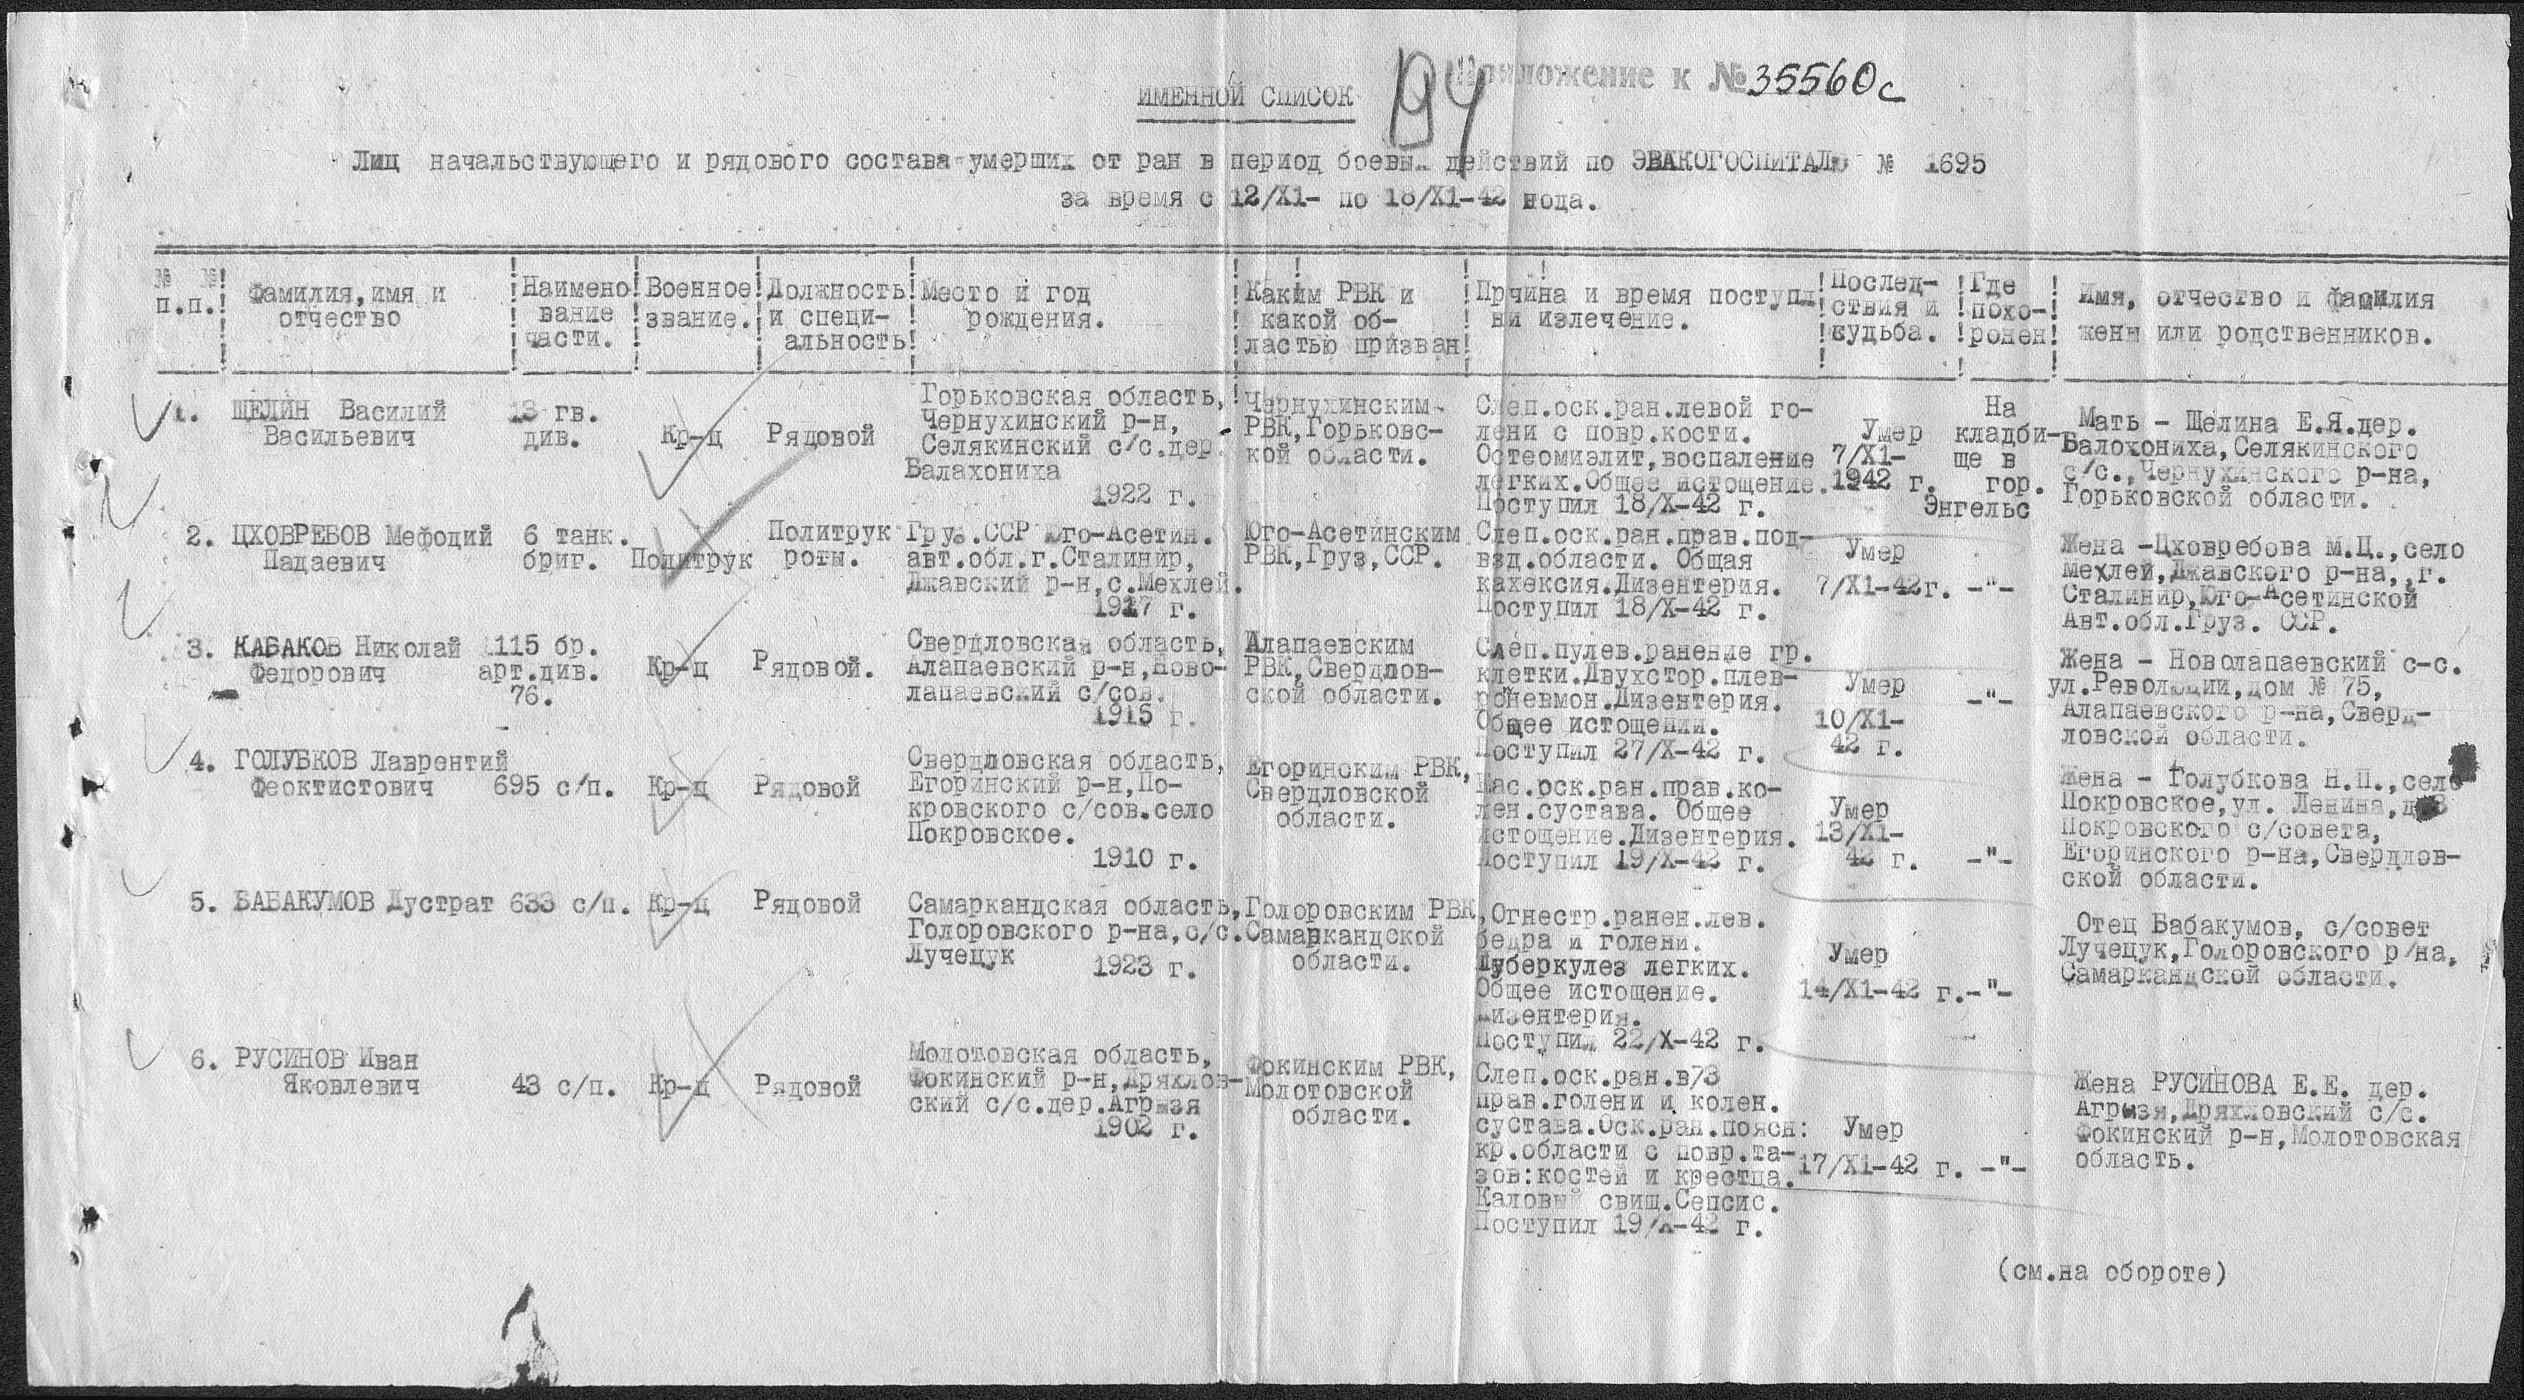 Приложение к № 35560с
94
ИМЕННОЙ СПИСОК
Лиц начальствующего и рядового состава умерших от ран в период боевых действий по ЭВАКОГОСПИТАЛЮ № 1695
за время с 12/Х1- по 18/Х1-42 года.
№ №
п.п.
Фамилия,имя и
отчество
Наимено
вание
части.
Военное
звание.
Должность
и специ-
альность
Место и год
рождения.
Каким РВК и
какой об-
ластью призван
Прчина и время поступл
ни излечение.
Послед-
ствия и
судьба.
Где
похо-
ронен
Имя, отчество и фамилия
жены или родственников.
1. ЩЕЛИН Василий
Васильевич
13 гв.
див.
Кр-ц
Рядовой
Горьковская область,
Чернухинский р-н,
Селякинский с/с.дер.
Балахониха
1922 г.
Чернухинским
РВК,Горьковс-
кой области.
Слеп.оск.ран.левой го-
лени с повр.кости.
Остеомиэлит,воспаление
легких.Общее истощение.
Поступил 18/Х-42 г.
Умер
7/Х1-
1942 г.
На
кладби-
ще в
гор.
Энгельс
Мать - Щелина Е.Я.дер.
Балохониха,Селякинского
с/с.,Чернухинского р-на,
Горьковской области.
2. ЦХОВРЕБОВ Мефодий
Падаевич
6 танк.
бриг.
Политрук
Политрук
роты.
Груз.ССР Юго-Асетин.
авт.обл.г.Сталинир,
Джавский р-н,с.Мехлей.
1917 г.
Юго-Асетинским
РВК,Груз,ССР.
Слеп.оск.ран.прав.под-
взд.области. Общая
кахексия.Дизентерия.
Поступил 18/Х-42 г.
Умер
7/Х1-42г.
-"-
Жена -Цховребова М.Ц.,село
Мехлей,Джавского р-на,,г.
Сталинир,Юго-Асетинской
Авт.обл.Груз. ССР.
3. КАБАКОВ Николай
Федорович
115 бр.
арт.див.
76.
Кр-ц
Рядовой.
Свердловская область,
Алапаевский р-н,Ново-
лапаевский с/сов.
1915 г.
Алапаевским
РВК,Свердлов-
ской области.
Слеп.пулев.ранение гр.
клетки.Двухстор.плев-
ропневмон.Дизентерия.
Общее истощении.
Поступил 27/Х-42 г.
Умер
10/Х1-
42 г.
-"-
Жена - Новолапаевский с-с.
ул.Революции,дом № 75,
Алапаевского р-на,Сверд-
ловской области.
4. ГОЛУБКОВ Лаврентий
Феоктистович
695 с/п.
Кр-ц
Рядовой
Свердловская область,
Егоринский р-н,По-
кровского с/сов.село
Покровское.
1910 г.
Егоринским РВК,
Свердловской
области.
Кас.оск.ран.прав.ко-
лен.сустава. Общее
истощение.Дизентерия.
Поступил 19/Х-42 г.
Умер
13/Х1-
42 г.
-"-
Жена - Голубкова Н.П.,село
Покровское,ул. Ленина,
Покровского с/совета,
Егоринского р-на,Свердлов-
ской области.
5. БАБАКУМОВ Дустрат
633 с/п.
Кр-ц
Рядовой
Самаркандская область,
Голоровского р-на,с/с.
Лучецук
1923 г.
Голоровским РВК,
Самаркандской
области.
Огнестр.ранен.лев.
бедра и голени.
Туберкулез легких.
Общее истощение.
Дизентерия.
Поступил 22/Х-42 г.
Умер
14/Х1-42 г.
-"-
Отец Бабакумов, с/совет
Лучецук,Голоровского р/на,
Самаркандской области.
6. РУСИНОВ Иван
Яковлевич
43 с/п.
Кр-ц
Рядовой
Молотовская область,
Фокинский р-н,Дряхлов-
ский с/с.дер.Агрызя
1902 г.
Фокинским РВК,
Молотовской
области.
Слеп.оск.ран.в/3
прав.голени и колен.
сустава.Оск.ран.поясн:
кр.области с повр.та-
зов:костей и крестца.
Каловый свищ.Сепсис.
Поступил 19/Х-42 г.
Умер
17/Х1-42 г.
-"-
Жена РУСИНОВА Е.Е. дер.
Агрызя,Дряхловский с/с.
Фокинский р-н,Молотовская
область.
(см.на обороте)